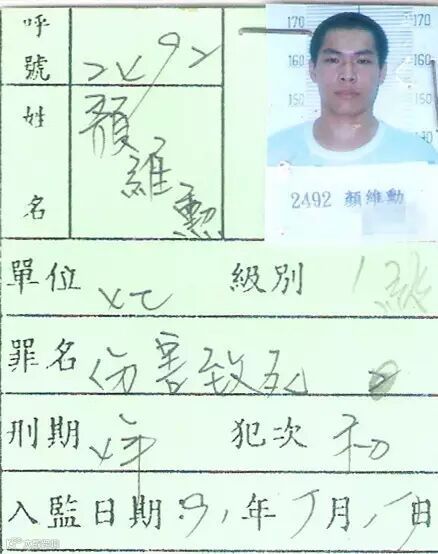 170 170
160 160
150 150
140
呼號 2492
姓名 顏維勳
2492 顏維勳
單位 級別 1級
罪名 伤害致死
刑期 年 犯次 初
入監日期:91年 月 日